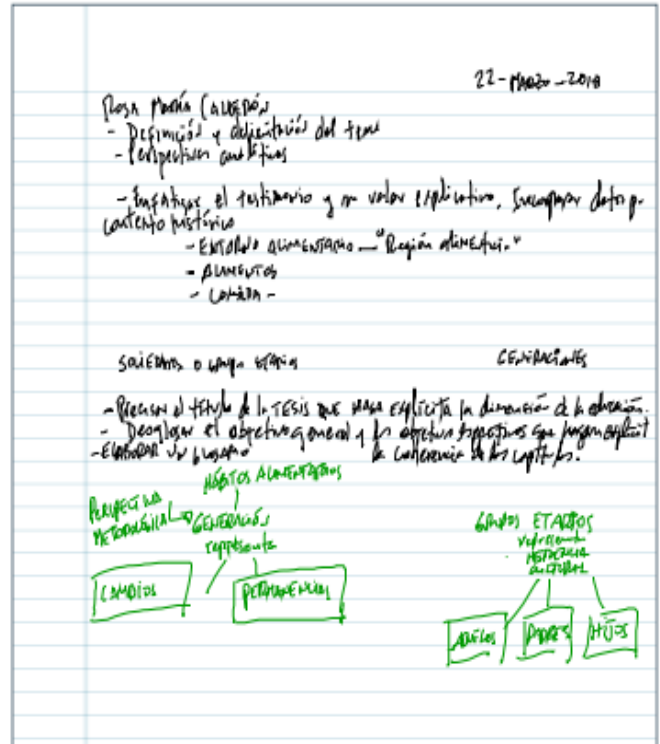 22-MARZO-2018
Rosa María CALDERÓN
- Definición y delimitación del tema
- Perspectivas analíticas
- Enfatizar el testimonio y su valor explicativo, Incorporar datos p.
contexto histórico
- ENTORNO ALIMENTARIO - "Región alimentari."
- ALIMENTOS
- COMIDA -
SOCIEDADES O grupo ETARIOS
GENERACIONES
- Precisar el título de la TESIS QUE HAGA EXPLÍCITA la dimensión de la educación.
- Desglosar el objetivo general y los objetivos específicos que hagan explícit
la coherencia de los capítulos.
- ELABORAR UN GLOSARIO
HÁBITOS ALIMENTARIOS
PERSPECTIVA
METODOLÓGICA GENERACIÓN
representa
CAMBIOS PERMANENCIAS
GRUPOS ETARIOS
representa
HERENCIA
CULTURAL
ABUELOS PADRES HIJOS